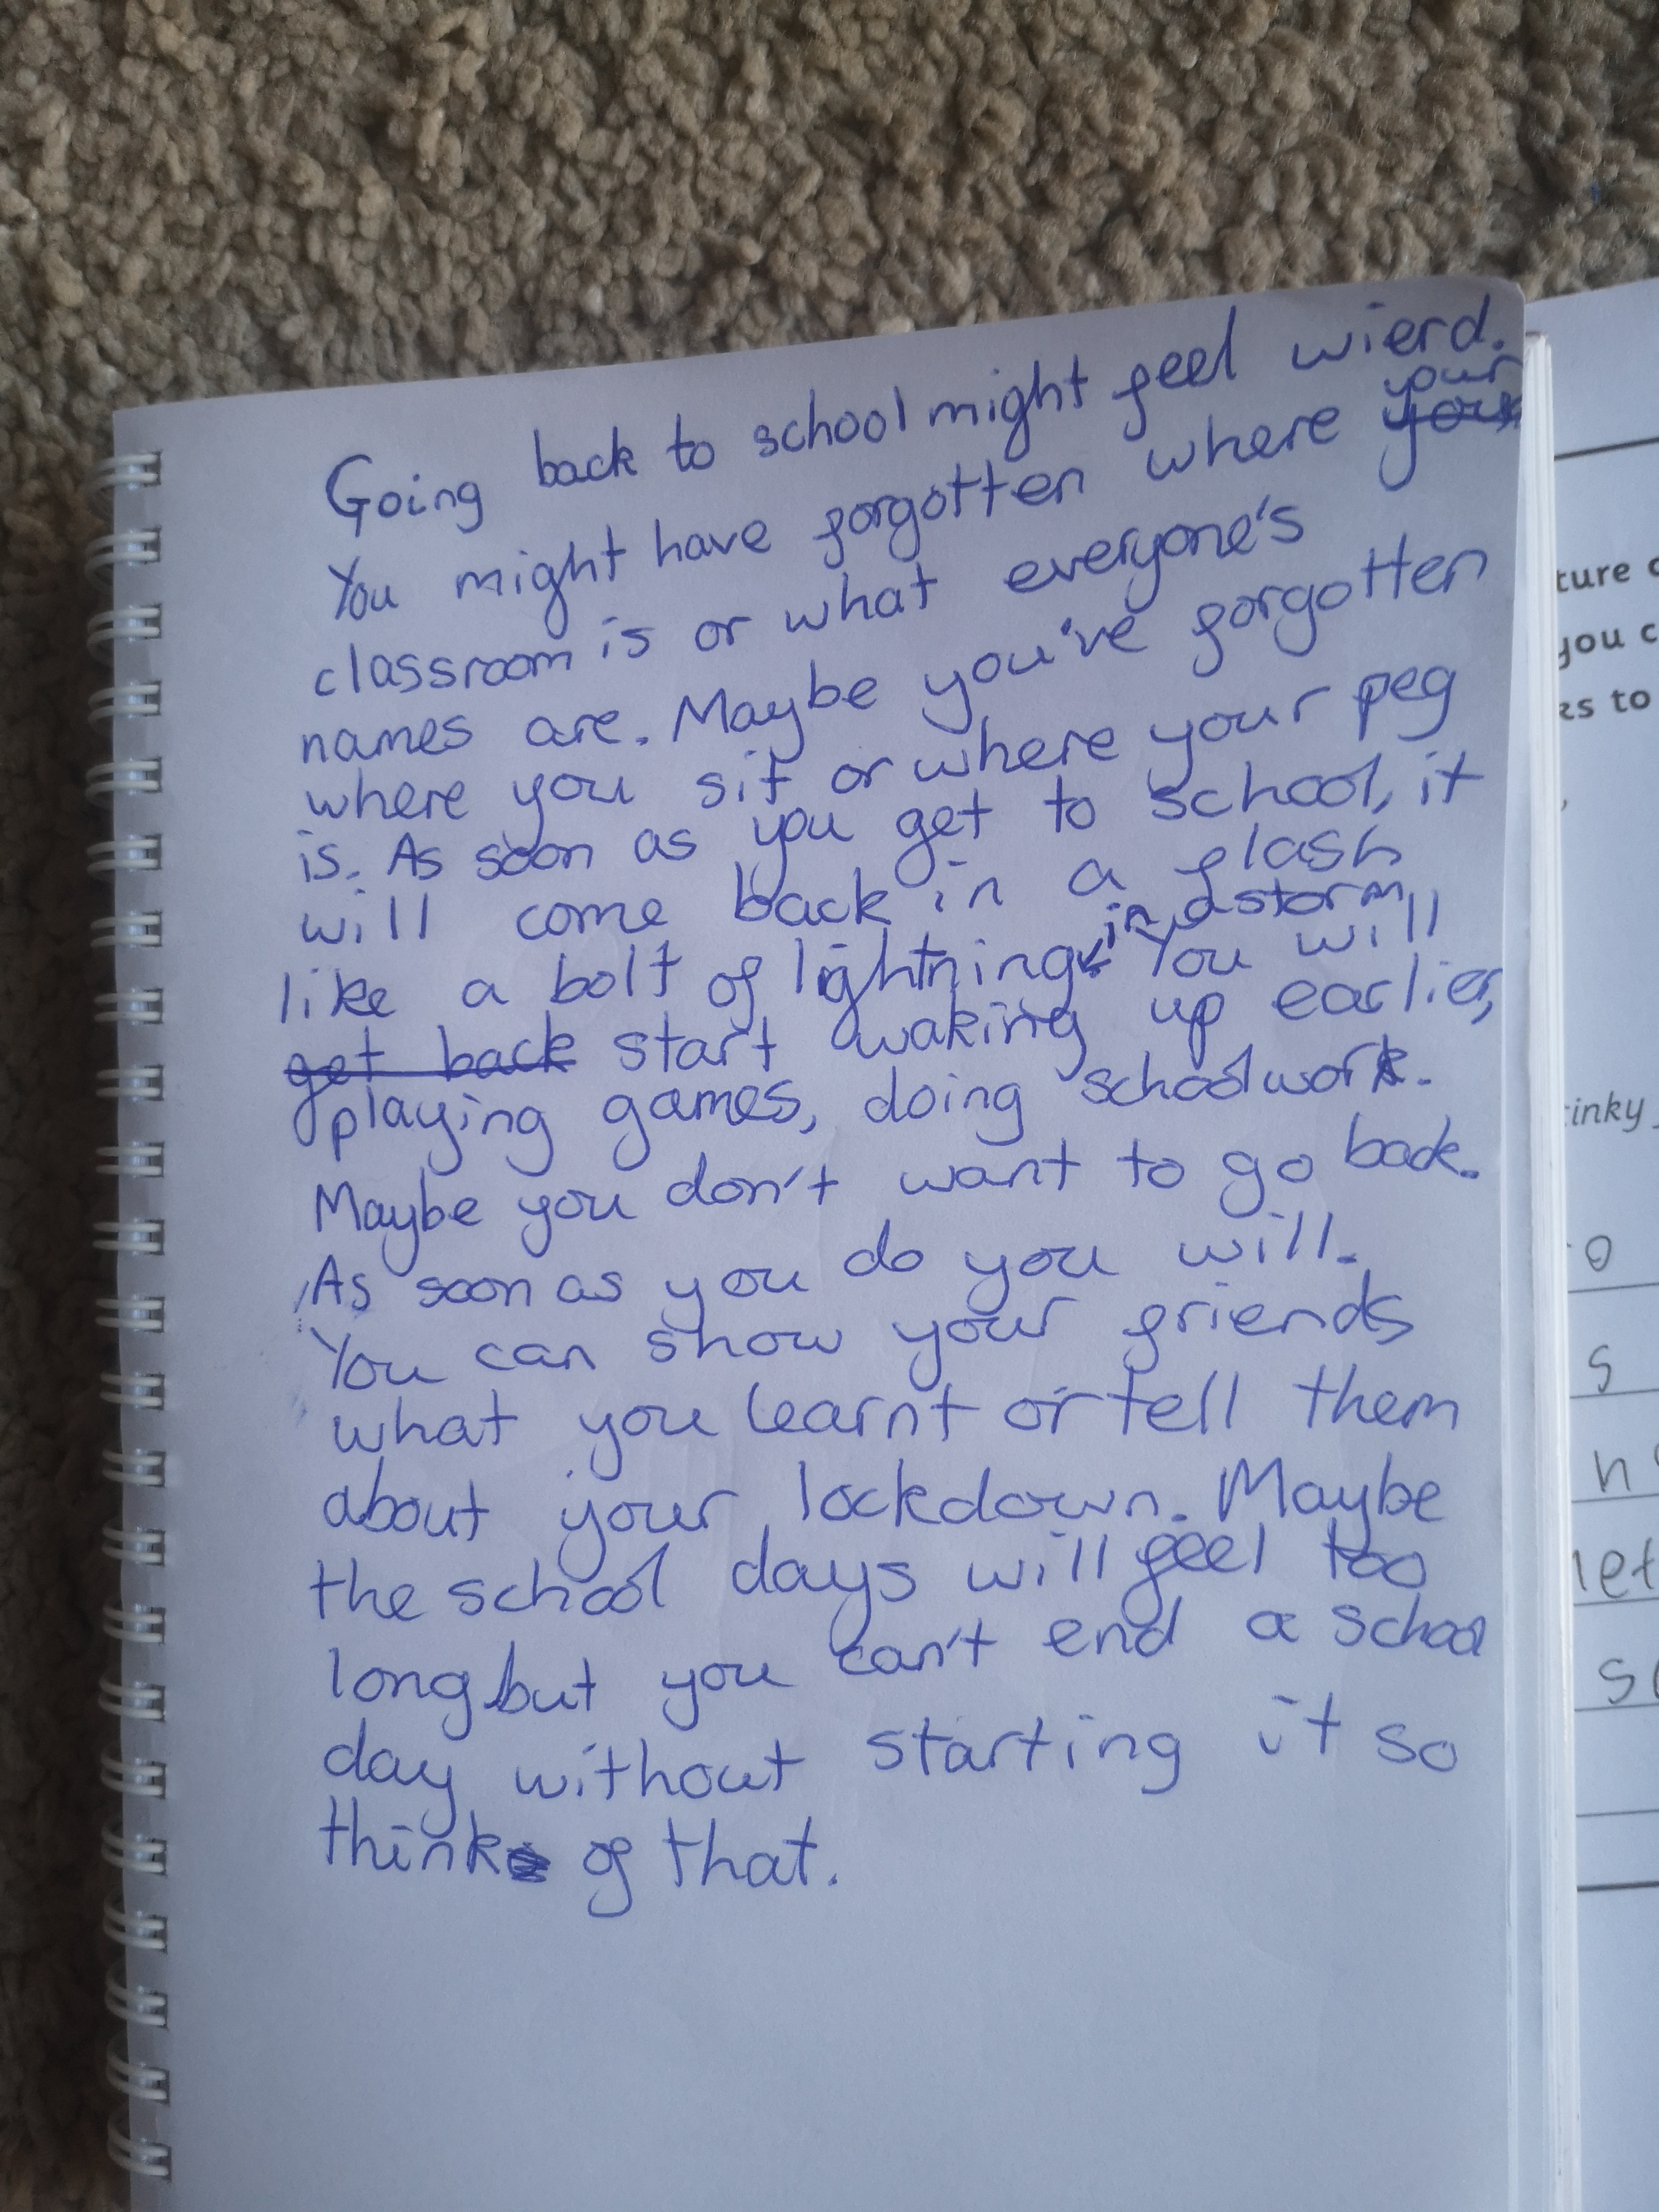 Going back to school might feel wierd.
your
You might have forgotten where your
classroom is or what everyone's
names are. Maybe you've forgotten
where you sit or where your peg
is. As soon as you get to school, it
will come back in a flash
in a storm
like a bolt of lightning. You will
get back start waking up earlier,
playing games, doing schoolwork.
Maybe you don't want to go back.
As soon as you do you will.
You can show your friends
what you learnt or tell them
about your lockdown. Maybe
the school days will feel too
long but you can't end a school
day without starting it so
think of that.
ture
you c
ks to
inky
o
s
h
let
s